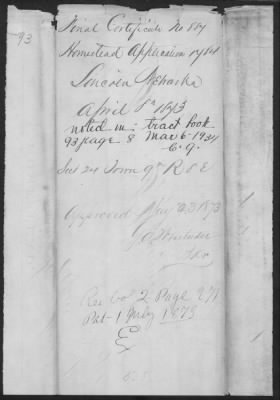 93
Final Certificate No 887
Homestead Application
Lincoln Nebraska
April 1873
noted in tract book
93 page 8 Mar 6-1934
C. G.
Sec 24 Town 9 R 5 E
Approved 23 1873
Rec Vol 2 Page 271
Pat 1 July 1873